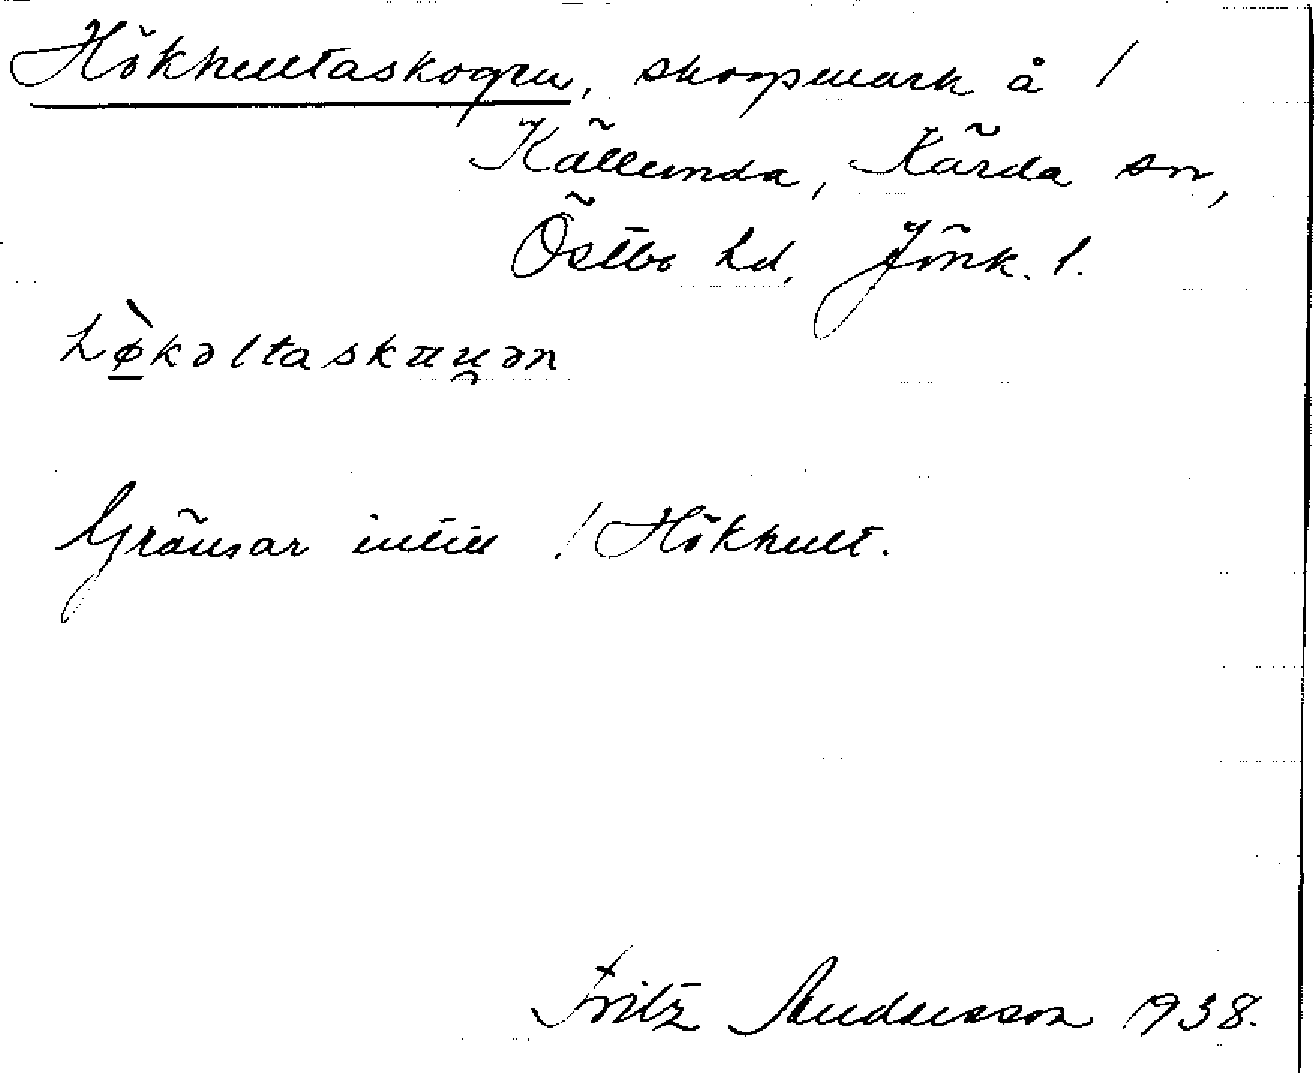 Hökhultaskogen, skogsmark å /
Källunda, Kärda sn,
Östbo hd, Jönk. l.
hø̀kəltaskau̯ən
Gränsar intill / Hökhult.
Fritz Andersson 1938.